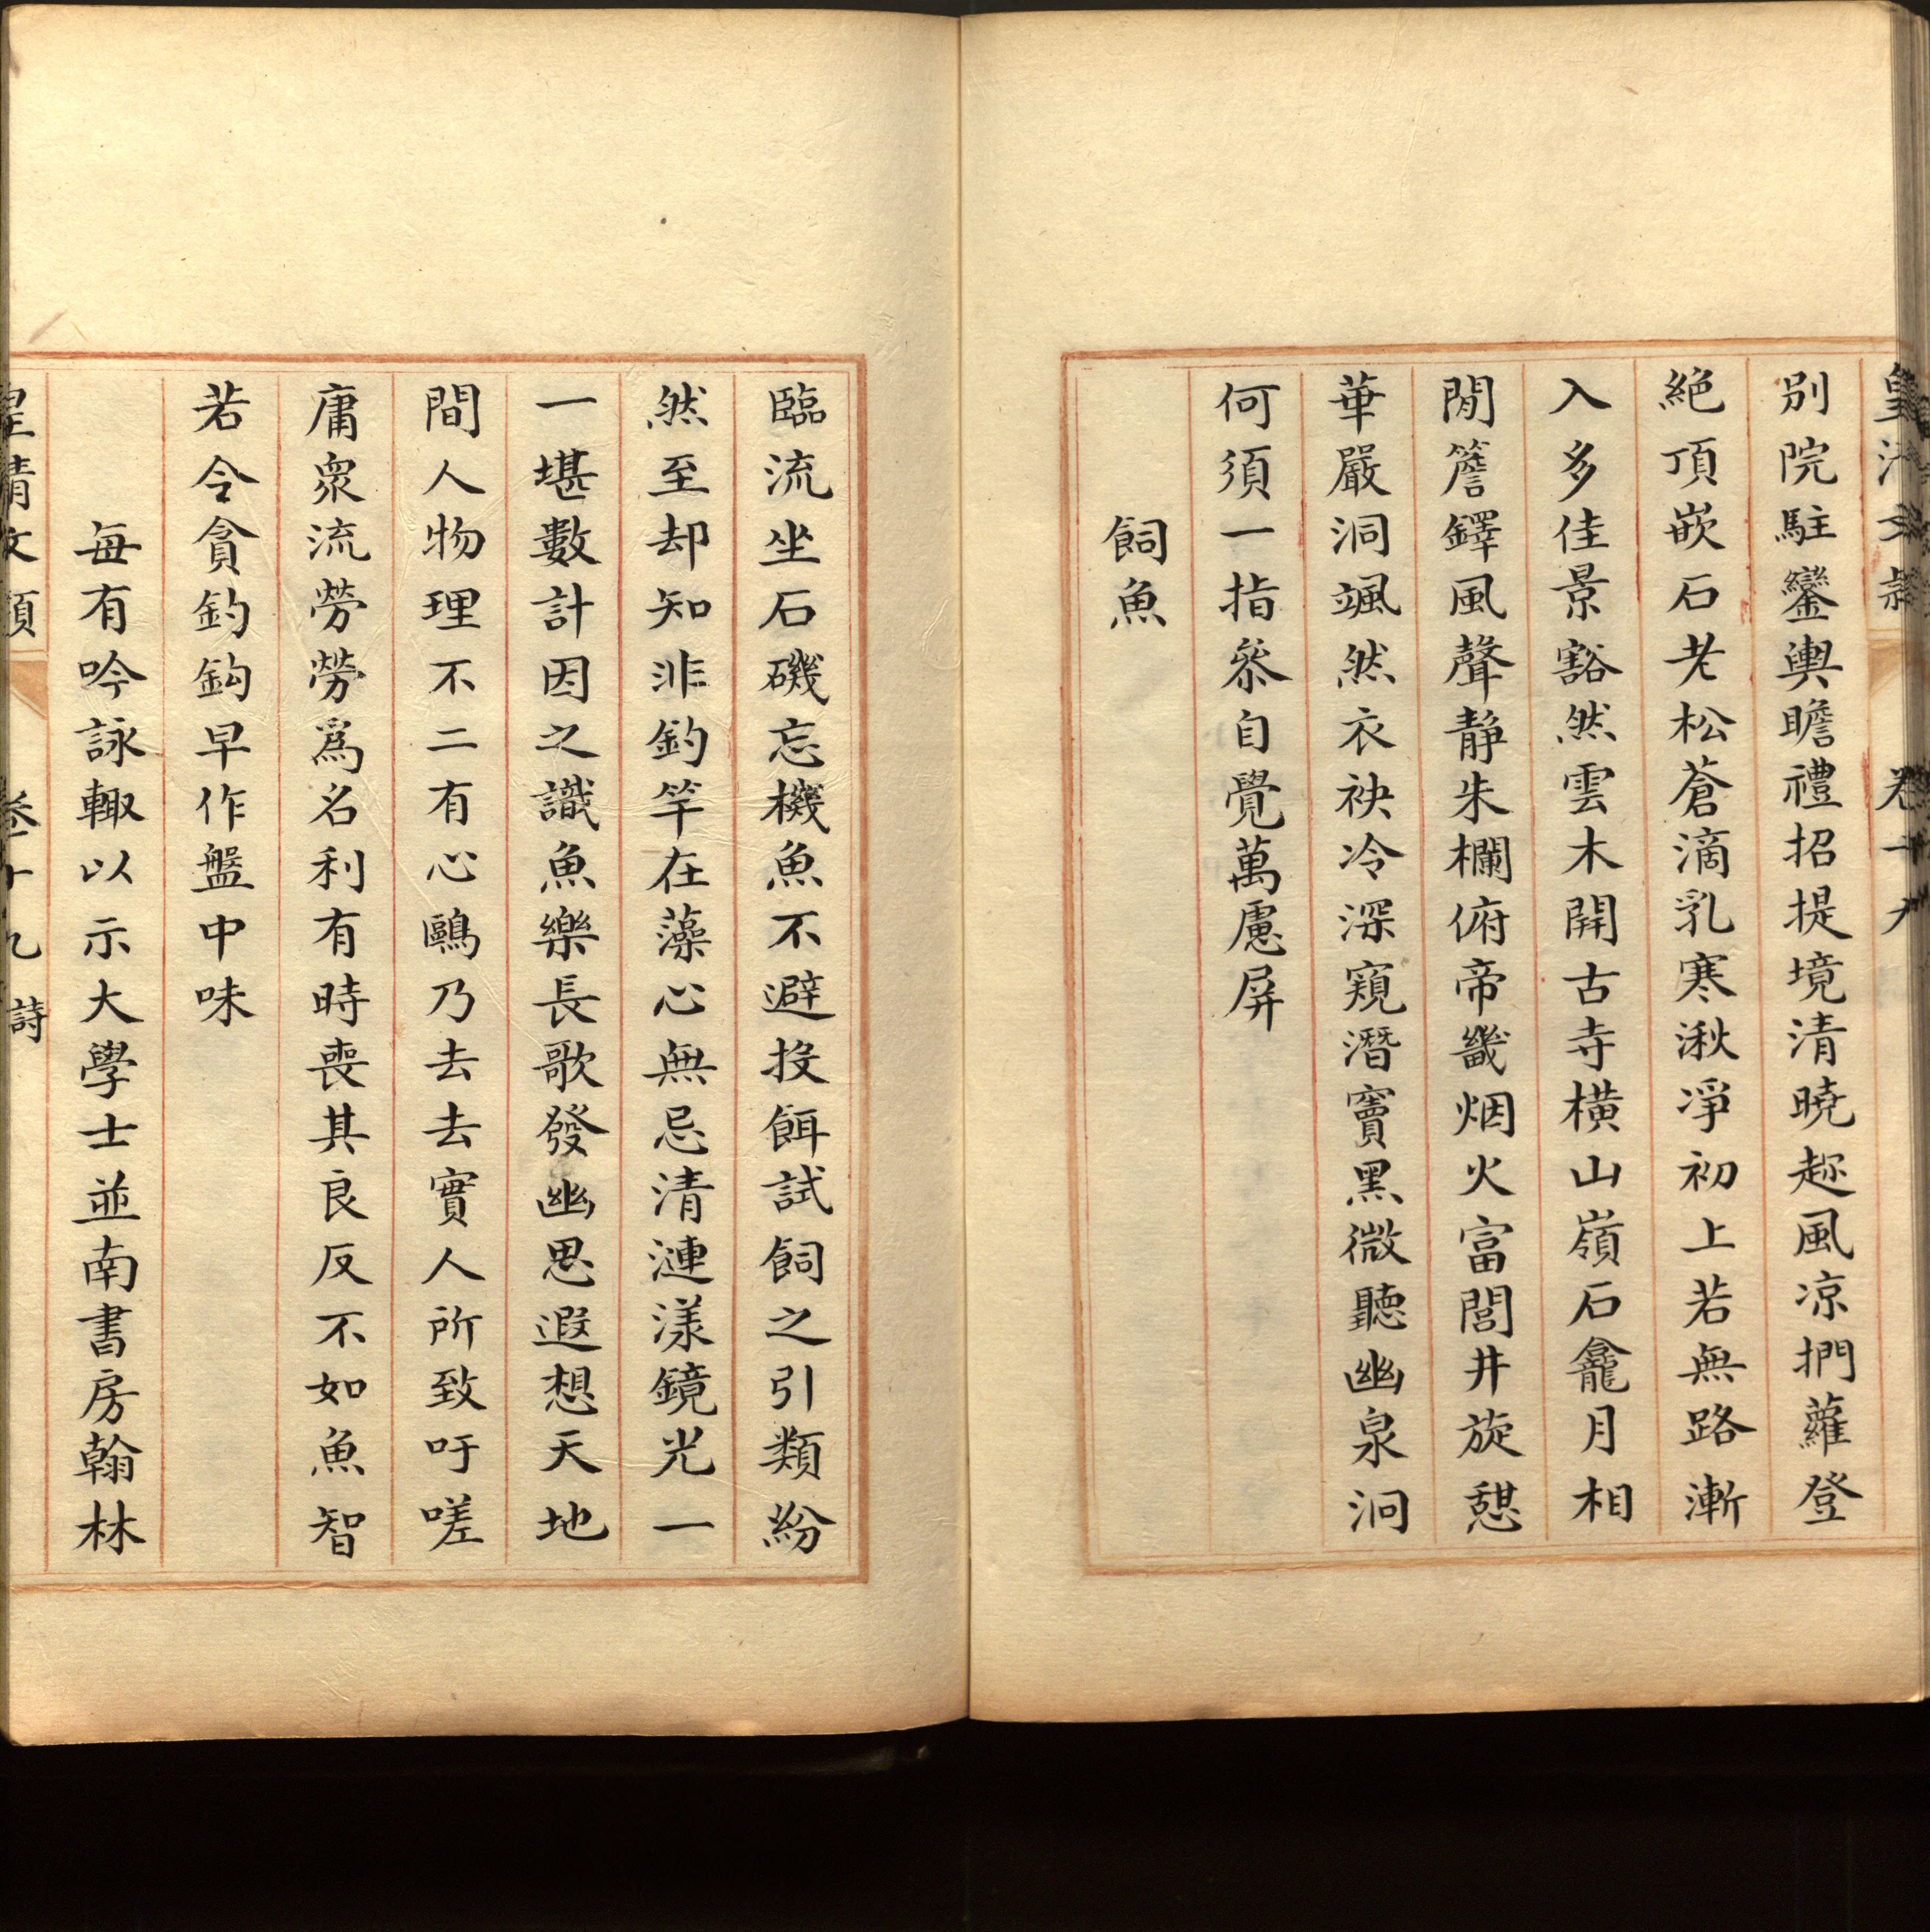 別院駐鑾輿瞻禮招提境清曉趂風凉捫蘿登
絶頂嵌石老松蒼滴乳寒湫凈初上若無路漸
入多佳景豁然雲木開古寺横山嶺石龕月相
閒簷鐸風聲靜朱欄俯帝畿烟火富閭井旋憇
華嚴洞颯然衣袂冷深窺潛竇黑微聽幽泉泂
何須一指叅自覺萬慮屏
飼魚
臨流坐石磯忘機魚不避投餌試飼之引類紛
然至却知非釣竿在藻心無忌清漣漾鏡光一
一堪數計因之識魚樂長歌發幽思遐想天地
間人物理不二有心鷗乃去去實人所致吁嗟
庸衆流勞勞爲名利有時喪其良反不如魚智
若令貪釣鈎早作盤中味
每有吟詠輙以示大學士並南書房翰林
皇清文類 卷十九 詩